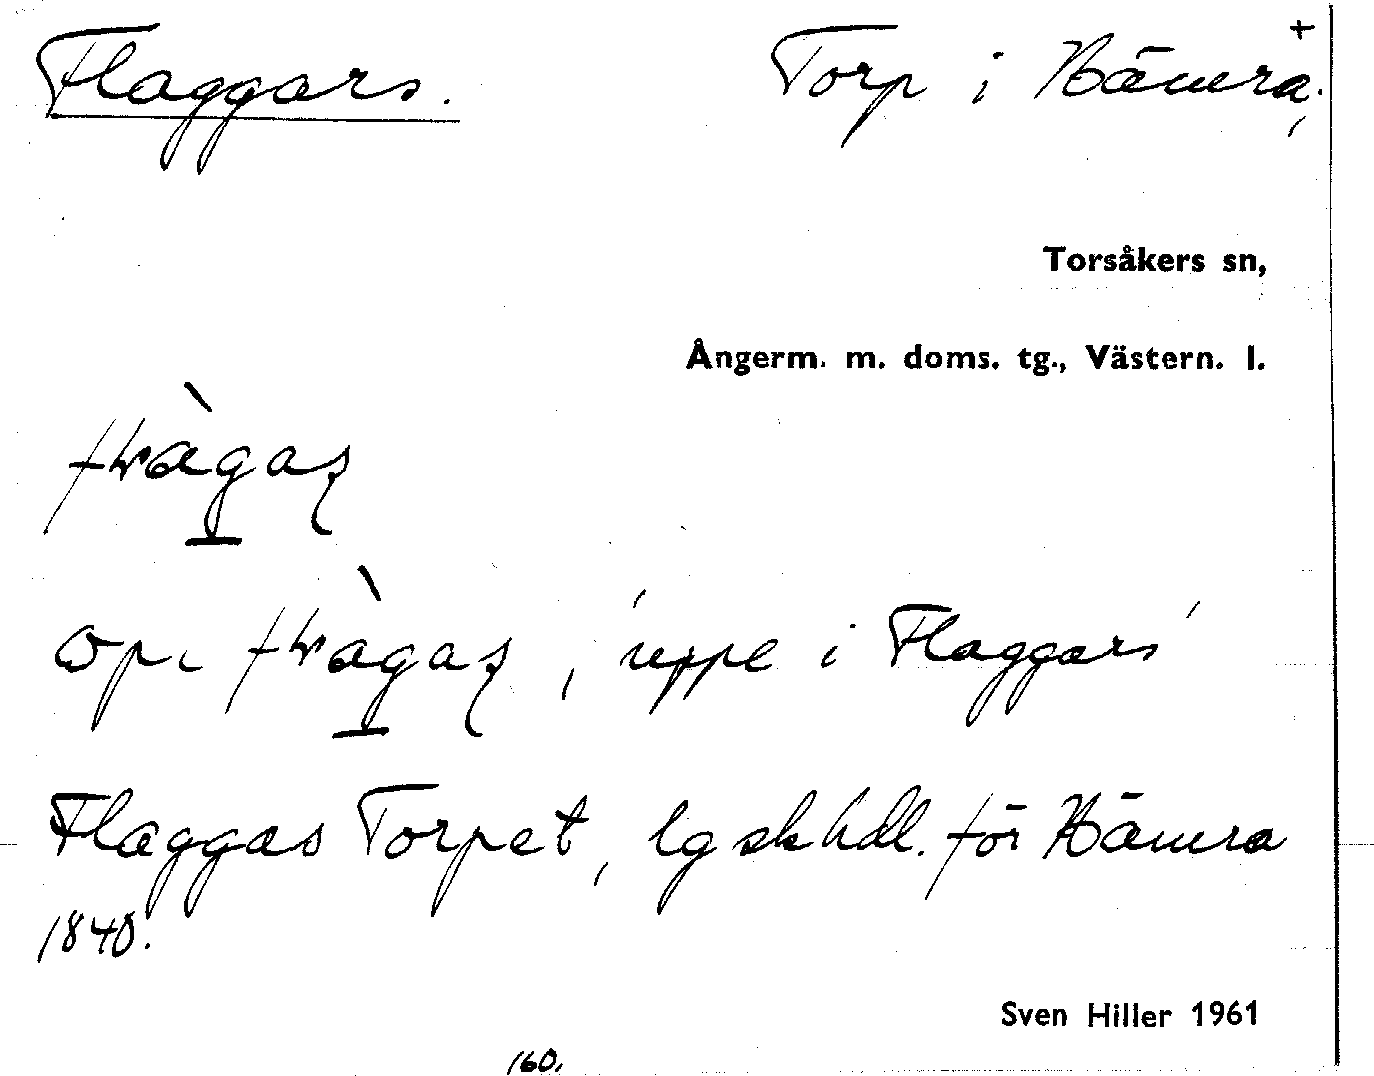 Flaggars. Torp i Hämra, +
Torsåkers sn,
Ångerm. m. doms. tg., Västern. l.
, 'uppe i Flaggars'
Flaggas Torpet, lgskhdl. för Hämra
1840.
Sven Hiller 1961
160.